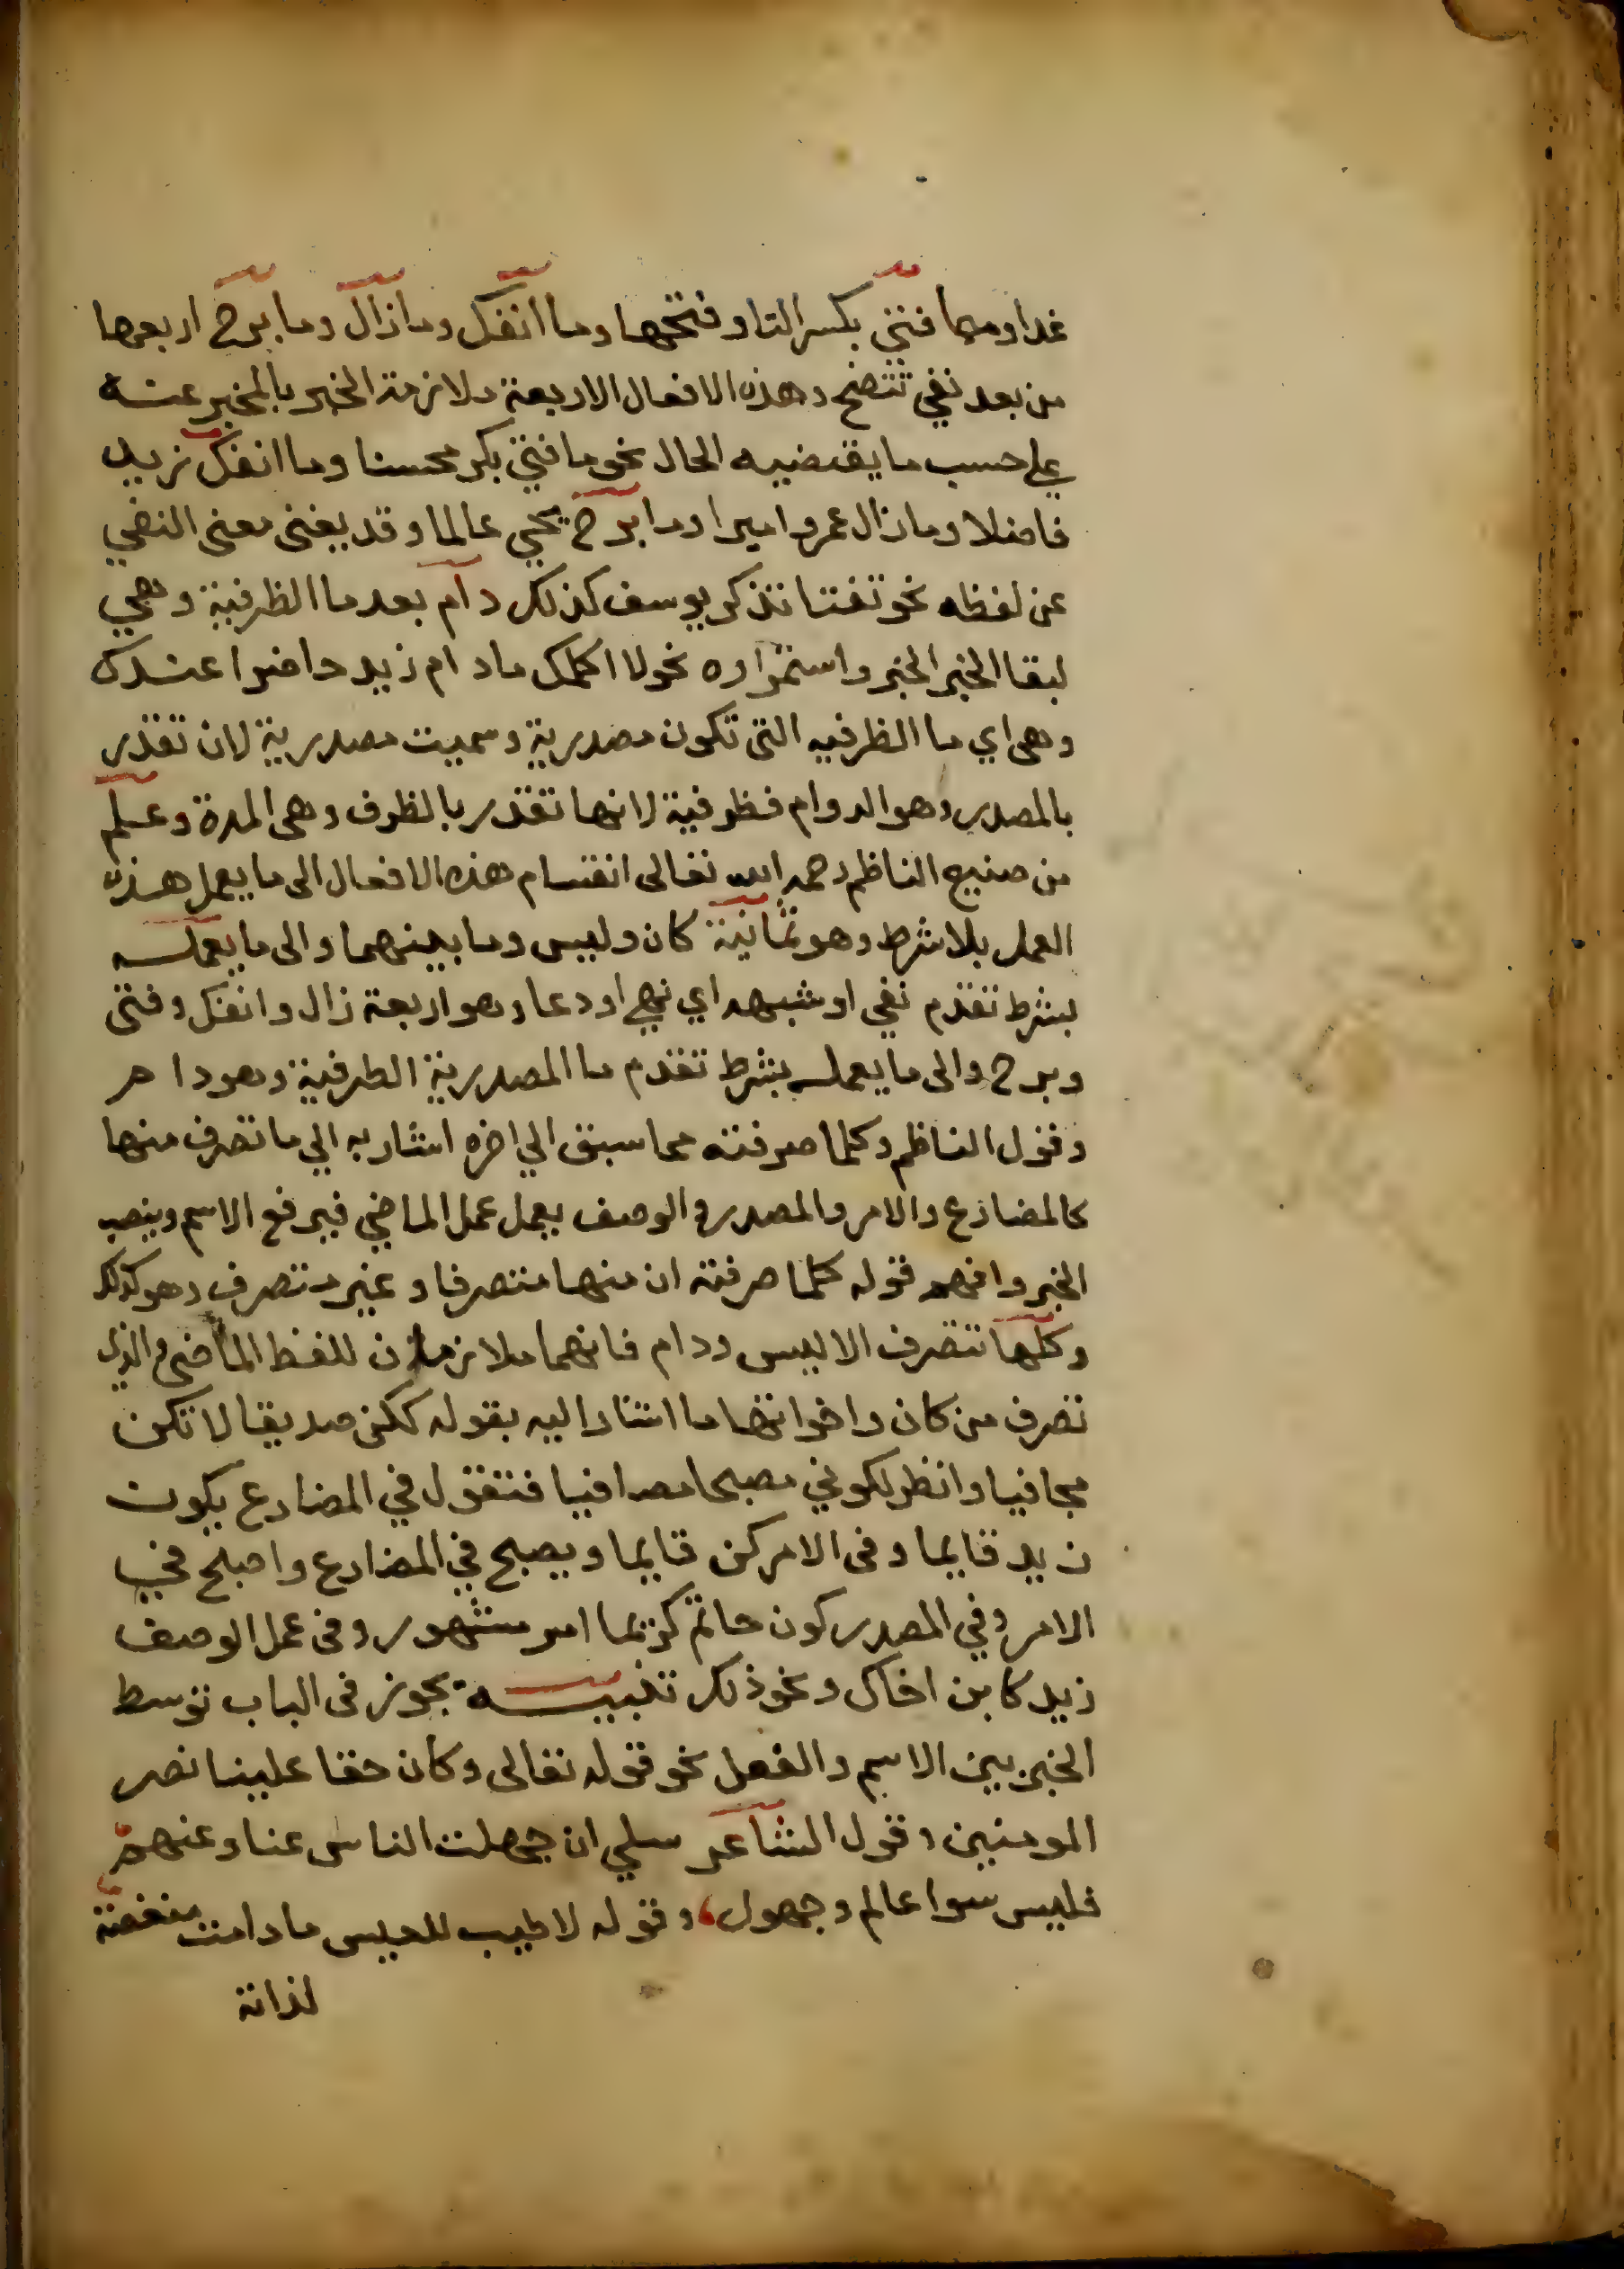 غدا وما فتئ بكسر التا وفتحها وما انفك وما زال وما برح اربعها
من بعد نفي تتضح وهذه الافعال الاربعة ملازمة الخبر بالمخبر عنه
علي حسب ما يقتضيه الحال نحو ما فتئ بكر محسنا وما انفك زيد
فاضلا وما زال عمرو اميرا وما برح يحيي عالما وقد يغني معنى النفي
عن لفظه نحو تفتا تذكر يوسف كذلك دام بعد ما الظرفية وهي
لبقا الخبر الخبر واستمراره نحو لا اكلمك ما دام زيد حاضرا عندك
وهى اي ما الظرفيه التى تكون مصدرية وسميت مصدرية لان تقدر
بالمصدر وهو الدوام فظرفية لانها تقدر بالظرف وهى المدة وعلم
من صنيع الناظم رحمه الله تعالى انقسام هذه الافعال الى ما يعمل هذا
العمل بلا شرط وهو ثمانية كان وليس وما بينهما والى ما يعمله
بشرط تقدم نفي او شبهه اي نهي او دعا وهو اربعة زال وانفك وفتئ
وبرح والى ما يعمله بشرط تقدم ما المصدرية الظرفية وهو دام
وقول الناظم وكلما صرفته مما سبق الي اخره اشار به الي ما تصرف منها
كالمضارع والامر والمصدر والوصف يعمل عمل الماضي فيرفع الاسم وينصب
الخبر وافهم قوله كلما صرفته ان منها متصرفا وغير متصرف وهو كذلك
وكلها تتصرف الا ليس ودام فانهما ملازمان للفظ الماضي والذي
تصرف من كان واخواتها ما اشار اليه بقوله ككن صديقا لا تكن
مجافيا وانظر لكوني مصبحا مصافيا فتقول في المضارع يكون
زيد قايما وفى الامر كن قايما ويصبح في المضارع واصبح في
الامر وفي المصدر كون حاتم كريما امر مشهور وفى عمل الوصف
زيد كاين اخاك ونحو ذلك تنبيه يجوز فى الباب توسط
الخبر بين الاسم والفعل نحو قوله تعالى وكان حقا علينا نصر
المومنين وقول الشاعر سلي ان جهلت الناس عنا وعنهم
فليس سوا عالم وجهول، وقوله لا طيب للعيس ما دامت منغصة
لذاته